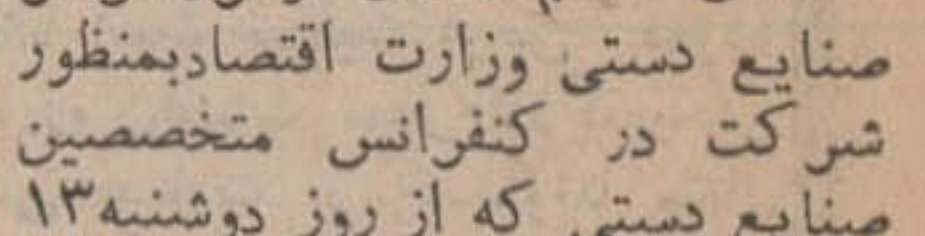 صنایع دستی وزارت اقتصادبمنظور
شرکت در کنفرانس متخصصین
صنایع دستی که از روز دوشنبه۱۳